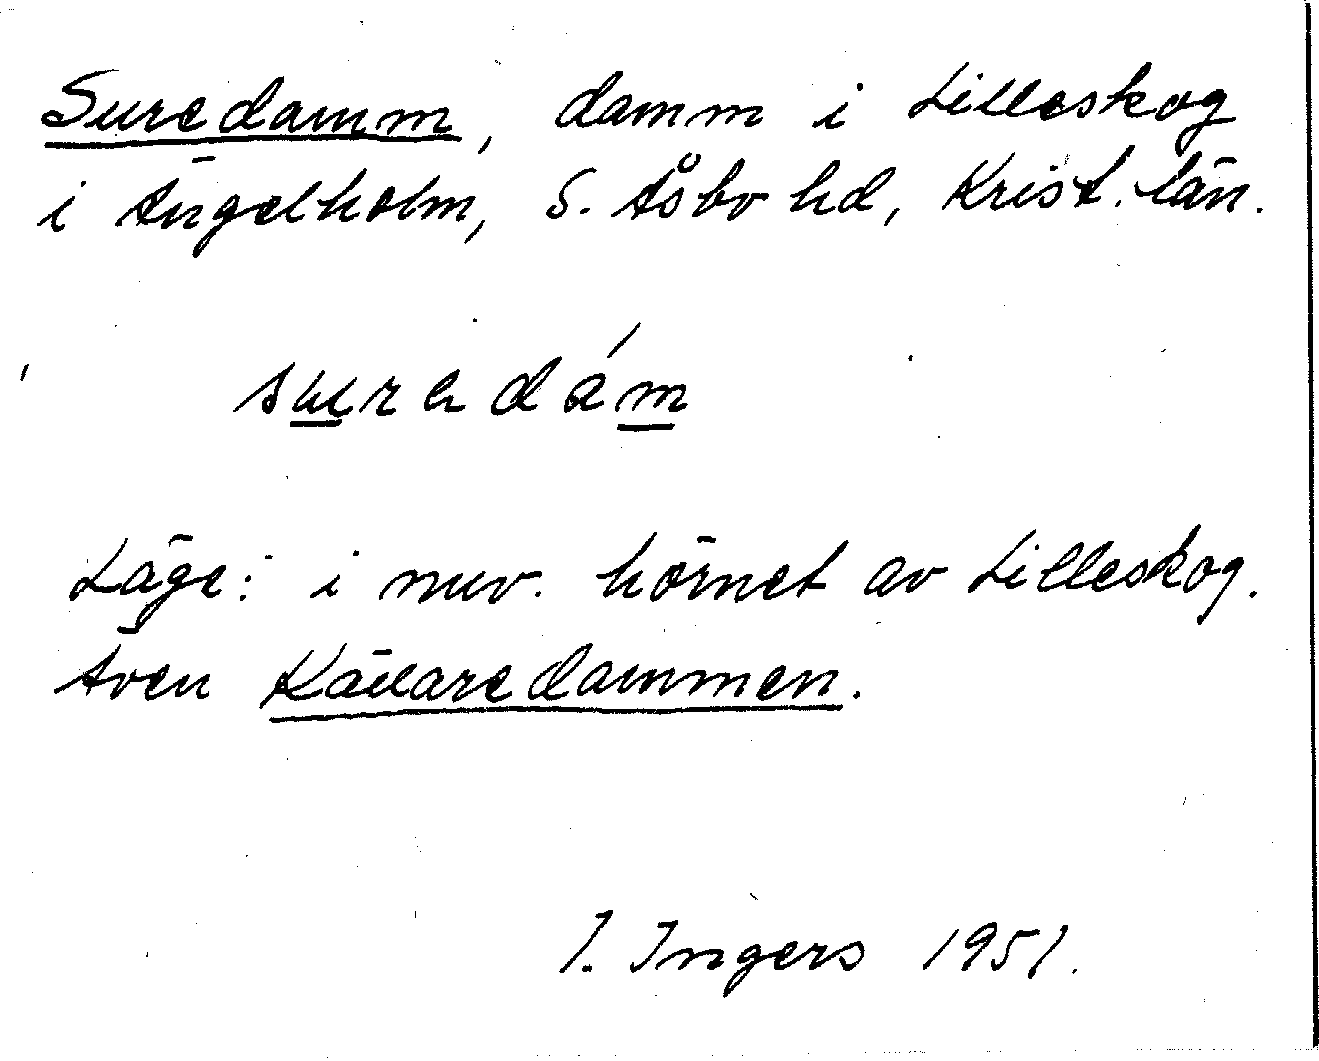 Suredamm, damm i Lilleskog
i Ängelholm, S. Åsbo hd, Krist. län.
Läge: i nuv. hörnet av Lilleskog.
Även Källaredammen.
I. Ingers 1951.